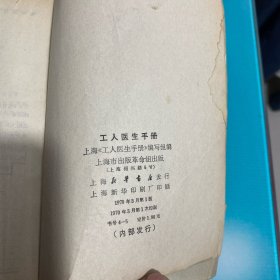 工人医生手册
上海《工人医生手册》编写组编
上海市出版革命组出版
(上海绍兴路5号)
上海新华书店发行
上海新华印刷厂印刷
1970年5月第1版
1970年5月第1次印刷
书号4—5 定价1.00元
(内部发行)